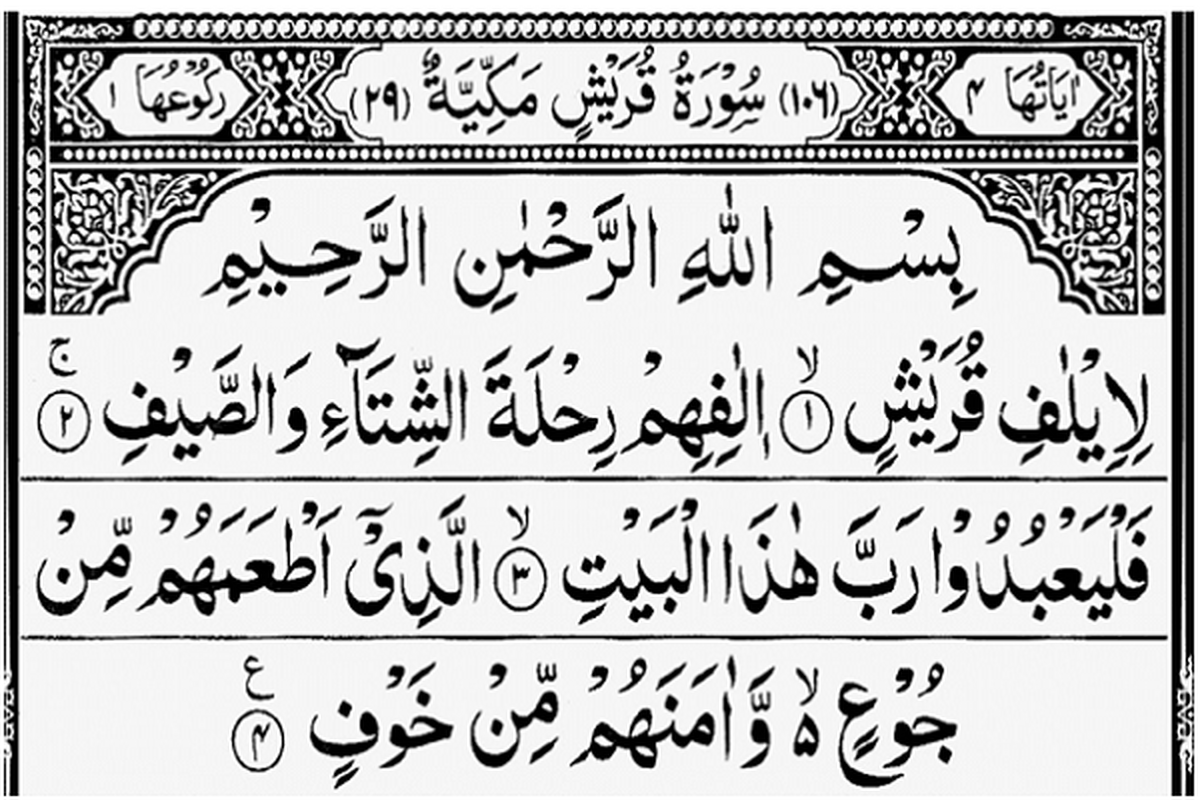 اٰيَاتُهَا ۴ (۱۰۶) سُوْرَةُ قُرَيْشٍ مَكِّيَّةٌ (۲۹) رُكُوْعُهَا ۱
بِسْمِ اللّٰهِ الرَّحْمٰنِ الرَّحِيْمِ
لِاِيْلٰفِ قُرَيْشٍ ۙ‏ ﴿۱﴾ اٖلٰفِهِمْ رِحْلَةَ الشِّتَآءِ وَالصَّيْفِ ۚ‏ ﴿۲﴾
فَلْيَعْبُدُوْا رَبَّ هٰذَا الْبَيْتِ ۙ‏ ﴿۳﴾ الَّذِىْٓ اَطْعَمَهُمْ مِّنْ
جُوْعٍ ۙ۬ وَّاٰمَنَهُمْ مِّنْ خَوْفٍ ﴿۴﴾ ع